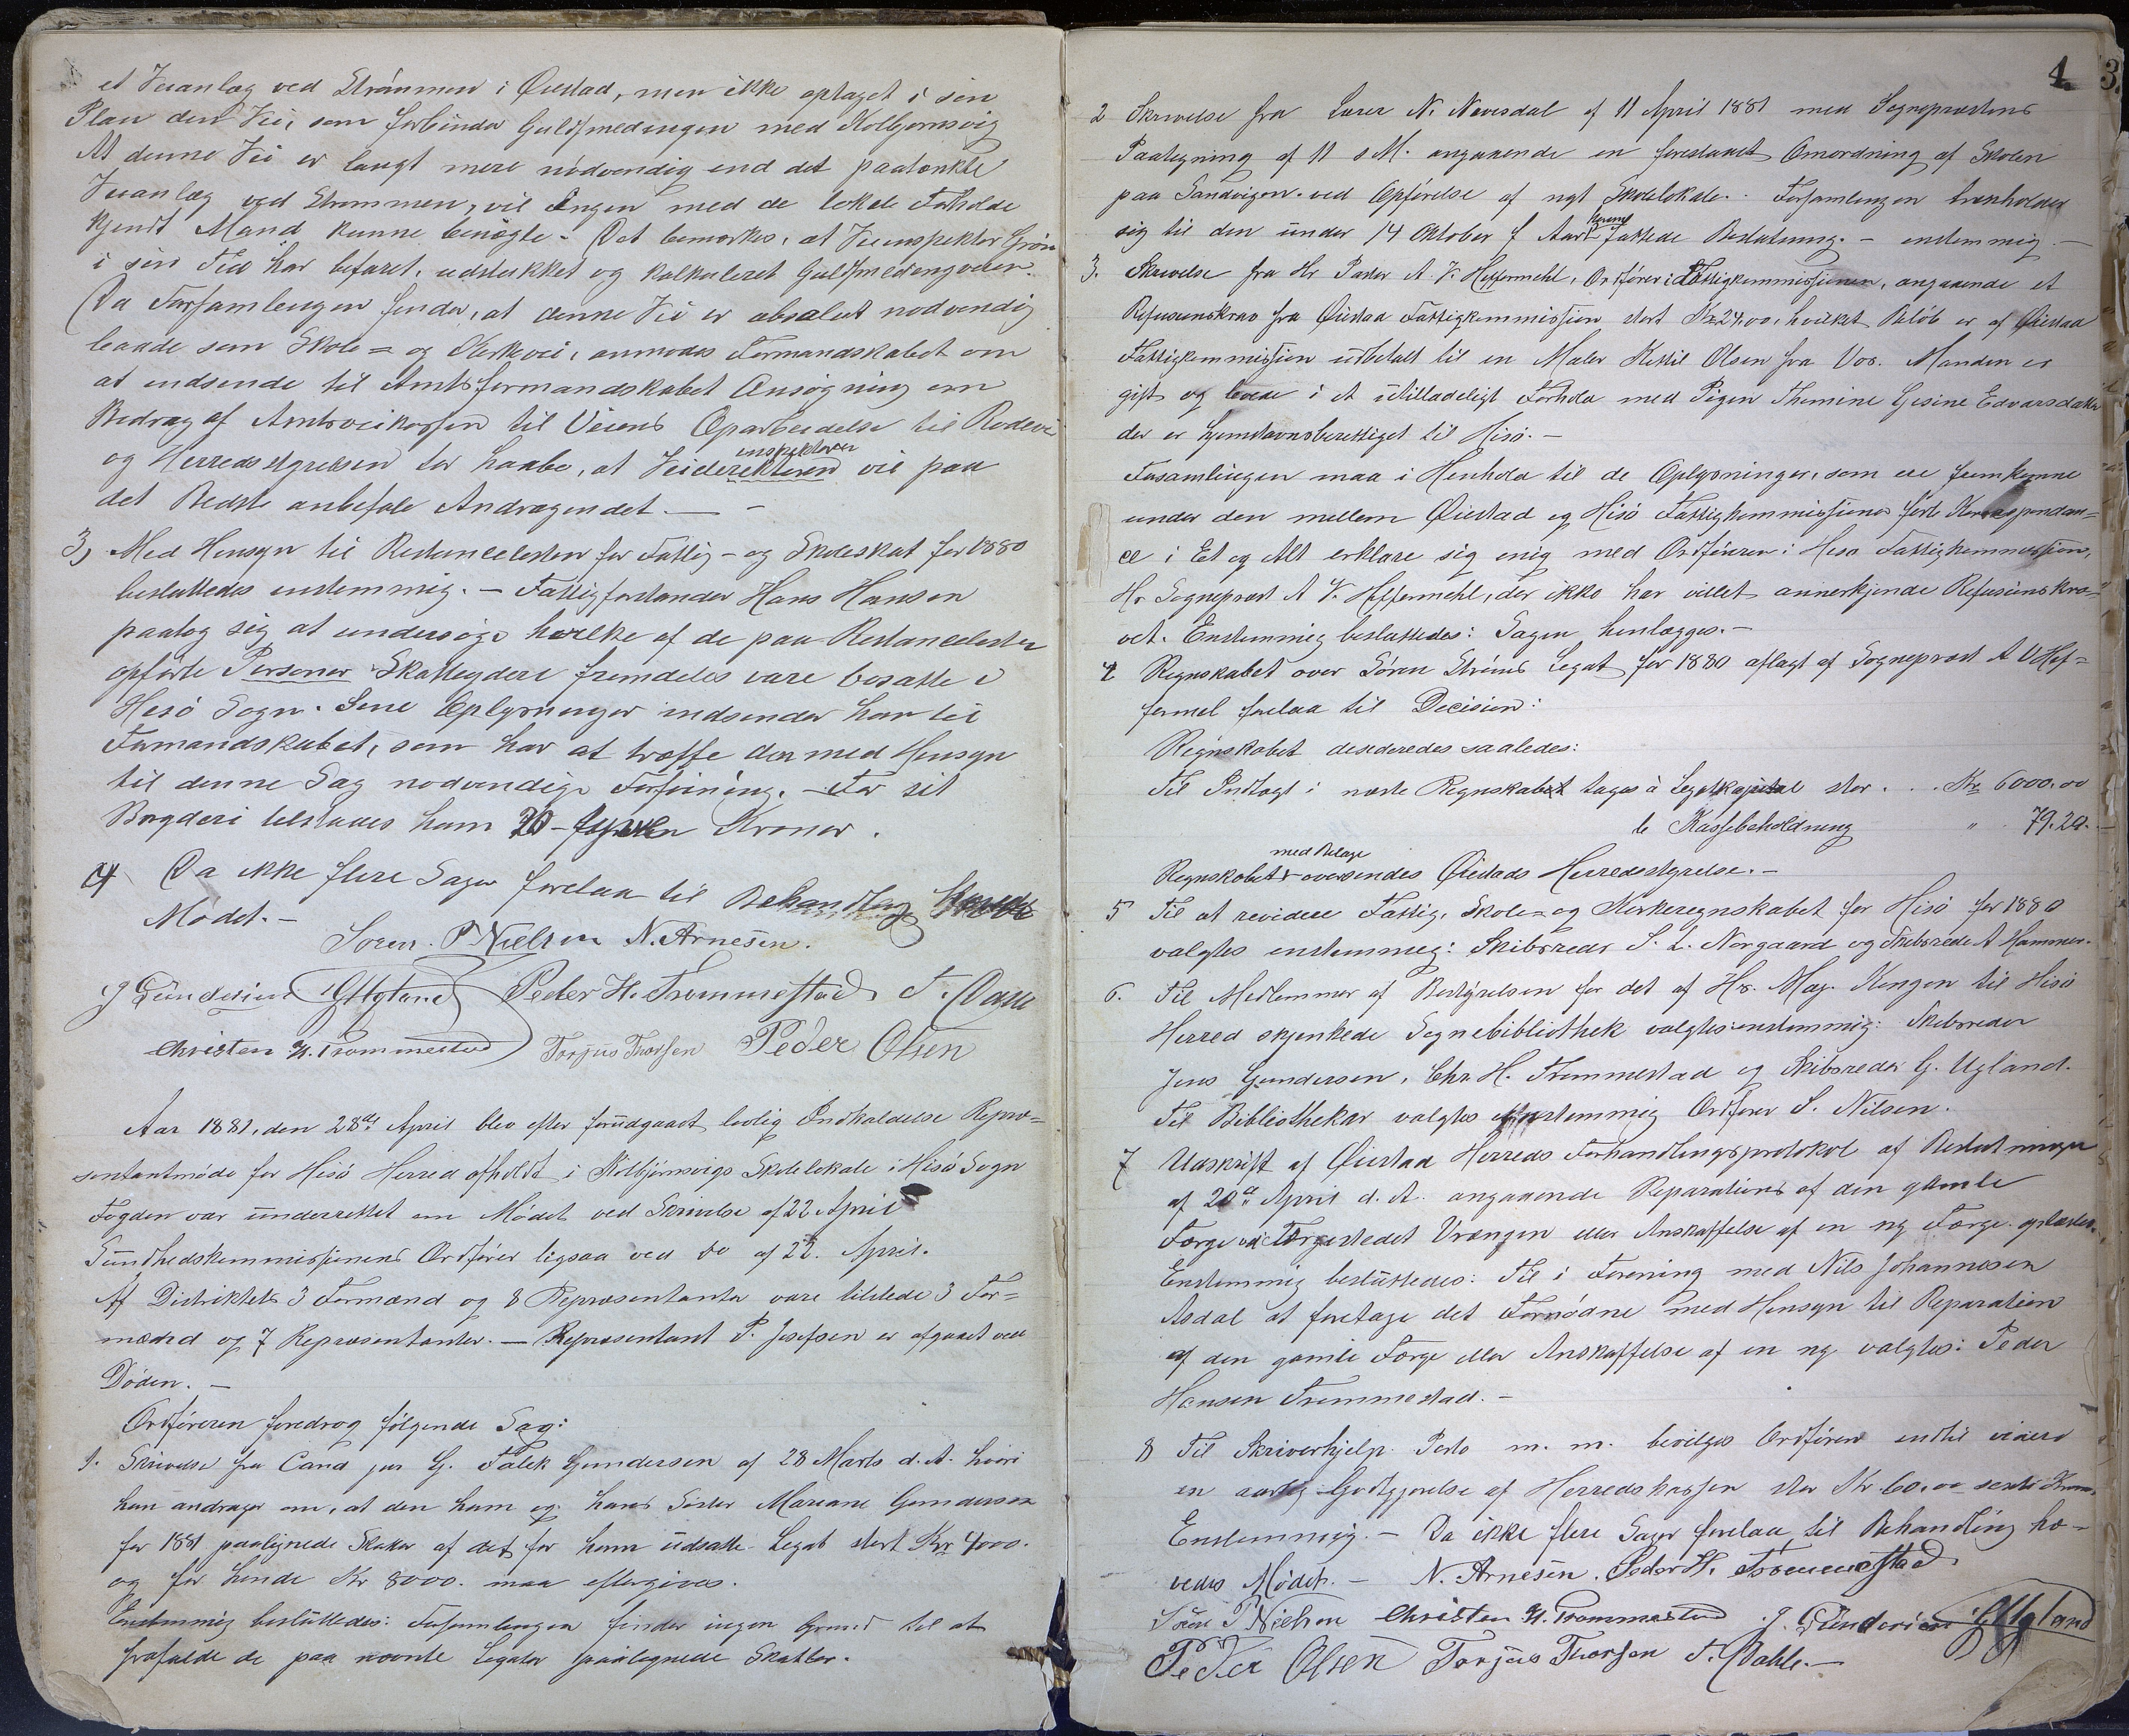 et Veianlæg ved Strömmen i Öiestad, men ikke optaget i sin
Plan den Vei, som forbinder Guldsmedengen med Kolbjørnsvig
At denne Vei er langt mere nödvendig end det paatænkte
Veianlæg ved Strømmen, vil Ingen med de lokale Forholde
kjendt Mand kunne benægte. – Det bemærkes, at Veiinspektør Grön
i sin Tid har befaret, udstukket og kalkuleret Guldsmedengveien.
Da Forsamlingen finder, at denne Vei er absolut nødvendig
baade som Skole= og Kirkevei, anmodes Formandskabet om
at indsende til Amtsformandskabet Ansøgning om
Bidrag af Amtsveikassen til Veiens Oparbeidelse til Rodevei
og Herredsstyrelsen tør haabe, at Veidirektøren inspektøren vil paa
det Bedste anbefale Andragendet. – –
3) Med Hensyn til Restancelisten for Fattig- og Skoleskat for 1880
besluttedes enstemmig. – Fattigforstander Hans Hansen
paatog sig at undersøge hvilke af de paa Restancelisten
opførte Personer Skatteydere fremdeles vare bosatte i
Hisö Sogn. Sine Oplysninger indsender han til
Formandskabet, som har at træffe den med Hensyn
til denne Sag nødvendige Forføining. – For sit
Bryderi tilstaaes ham 20 – Kroner.
4 Da ikke flere Sager forelaa til Behandling hævedes
Mødet. –
Søren P. Nielsen N. Arnesen.
J Gundersen G Ugland Peder H. Trommestad T. Dahle
Christen H. Trommestad Torjus Thorsen Peder Olsen
Aar 1881, den 28de April blev efter forudgaaet lovlig Indkaldelse Repræ=
sentantmøde for Hisö Herred afholdt i Kolbjörnsvigs Skolelokale i Hisö Sogn
Fogden var underrettet om Mødet ved Skrivelse af 22 April
Sundhedskommissionens Ordfører ligsaa ved do af 22. April.
Af Distriktets 3 Formænd og 8 Repræsentanter vare tilstede 3 For=
mænd og 7 Repræsentanter. – Repræsentant P. Josefsen er afgaaet ved
Døden. –
Ordføreren foredrog følgende Sag:
1. Skrivelse fra Cand jur G. Falck Gundersen af 28 Marts d. A. hvori
han andrager om, at den ham og hans Søster Mariane Gundersen
for 1881 paalignede Skatter af det for ham udsatte Legat stort Kr 4000.
og for hende Kr 8000. maa eftergives.
Enstemmig besluttedes: Forsamlingen finder ingen Grund til at
frafalde de paa nævnte Legater paalignede Skatter.
4 3.
2 Skrivelse fra Lærer N. Nævesdal af 11 April 1881 med Sognepræstens
Paategning af 11 s M. angaaende en forestaaet Omordning af Skolen
paa Sandvigen ved Opførelse af nyt Skolelokale. Forsamlingen henholder
sig til den under 14 Oktober f Aar herom fattede Beslutning. – enstemmig –
3. Skrivelse fra Hr Pastor A. V. Heffermehl, Ordfører i Fattigkommissionen, angaaende et
Refusionskrav fra Öiestad Fattigkommission stort Kr 24,00, hvilket Beløb er af Öiestad
Fattigkommission udbetalt til en Maler Kittil Olsen fra Vos. Manden er
gift og levede i et utilladeligt Forhold med Pigen Thomine Gesine Edvarsdatter
der er hjemstavnsberettiget til Hisö. –
Forsamlingen maa i Henhold til de Oplysninger, som ere fremkomne
under den mellem Öiestad og Hisö Fattigkommissioner førte Korrespondan=
ce i Et og Alt erklære sig enig med Ordføreren i Hisø Fattigkommission,
Hr Sognepræst A V. Heffermehl, der ikke har villet annerkjende Refusionskra=
vet. Enstemmig besluttedes: Sagen henlægges. –
4 Regnskabet over Sören Ströms Legat for 1880 aflagt af Sognepræst A V Hef=
fermel forelaa til Decision:
Regnskabet desideredes saaledes:
Til Indtægt i næste Regnskabet tages a Legatkapital stor . . . Kr. 6000.00
b Kassebeholdning " 79.20. –
Regnskabet med Belage oversendes Öiestads Herredsstyrelse. –
5 Til at revidere Fattig, Skole= og Kirkeregnskabet for Hisö for 1880
valgtes enstemmig: Skibsreder S. L. Norgaard og Skibsreder A Hammer.
6. Til Medlemmer af Bestyrelsen for det af Hs. Maj. Kongen til Hisö
Herred skjenkede Sognebibliothek valgtes enstemmig: Skibsreder
Jens Gundersen, Chr. H. Trommestad og Skibsreder G. Ugland.
Til Bibliothekar valgtes enstemmig Ordfører S. Nilsen.
7 Udskrift af Öiestad Herreds Forhandlingsprotokol af Beslutninger
af 20de April d. A. angaaende Reparation af den gamle
Færge ved Færgestedet Vrængen eller Anskaffelse af en ny Færge oplæstes.
Enstemmig besluttedes: Til i Forening med Nils Johannesen
Asdal at foretage det Fornødne med Hensyn til Reparation
af den gamle Færge eller Anskaffelse af en ny valgtes: Peder
Hansen Trommestad. –
8 Til Skriverhjelp Porto m. m. bevilges Ordføren indtil videre
en aarlig Godtgjørelse af Herredskassen stor Kr 60,00 sexti Kroner
Enstemmig. – Da ikke flere Sager forelaa til Behandling hæ=
vedes Mødet. – N. Arnesen. Peder H. Trommestad
Søren P Nielsen Christen H. Trommestad J. Gundersen G Ugland
Peder Olsen Torjus Thorsen T. Dahle. –